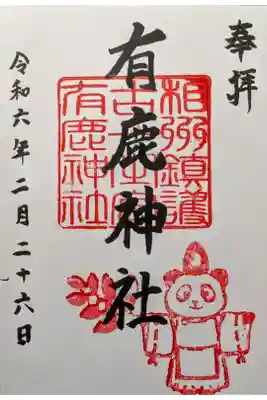 奉拝
有鹿神社
相州鎮護
有鹿神社
令和六年二月二十六日